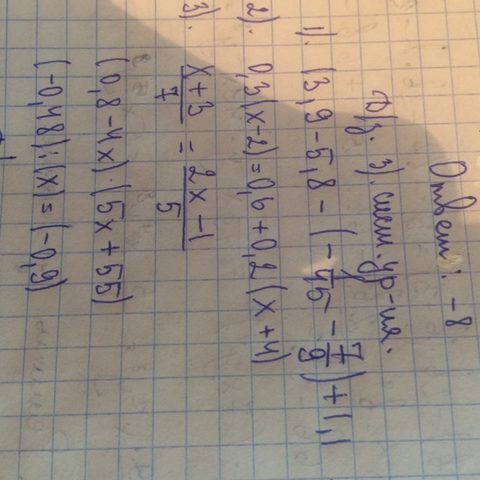 Ответ: -8
D/з. 3). смеш. ур-ия.
1). (3,9-5,8-(-4/45-7/9)+1,1
2). 0,3(x-2)=0,6+0,2(x+4)
3). x+3/7 = 2x-1/5
(0,8-4x)·(5x+55)
(-0,48):(x)=(-0,9)